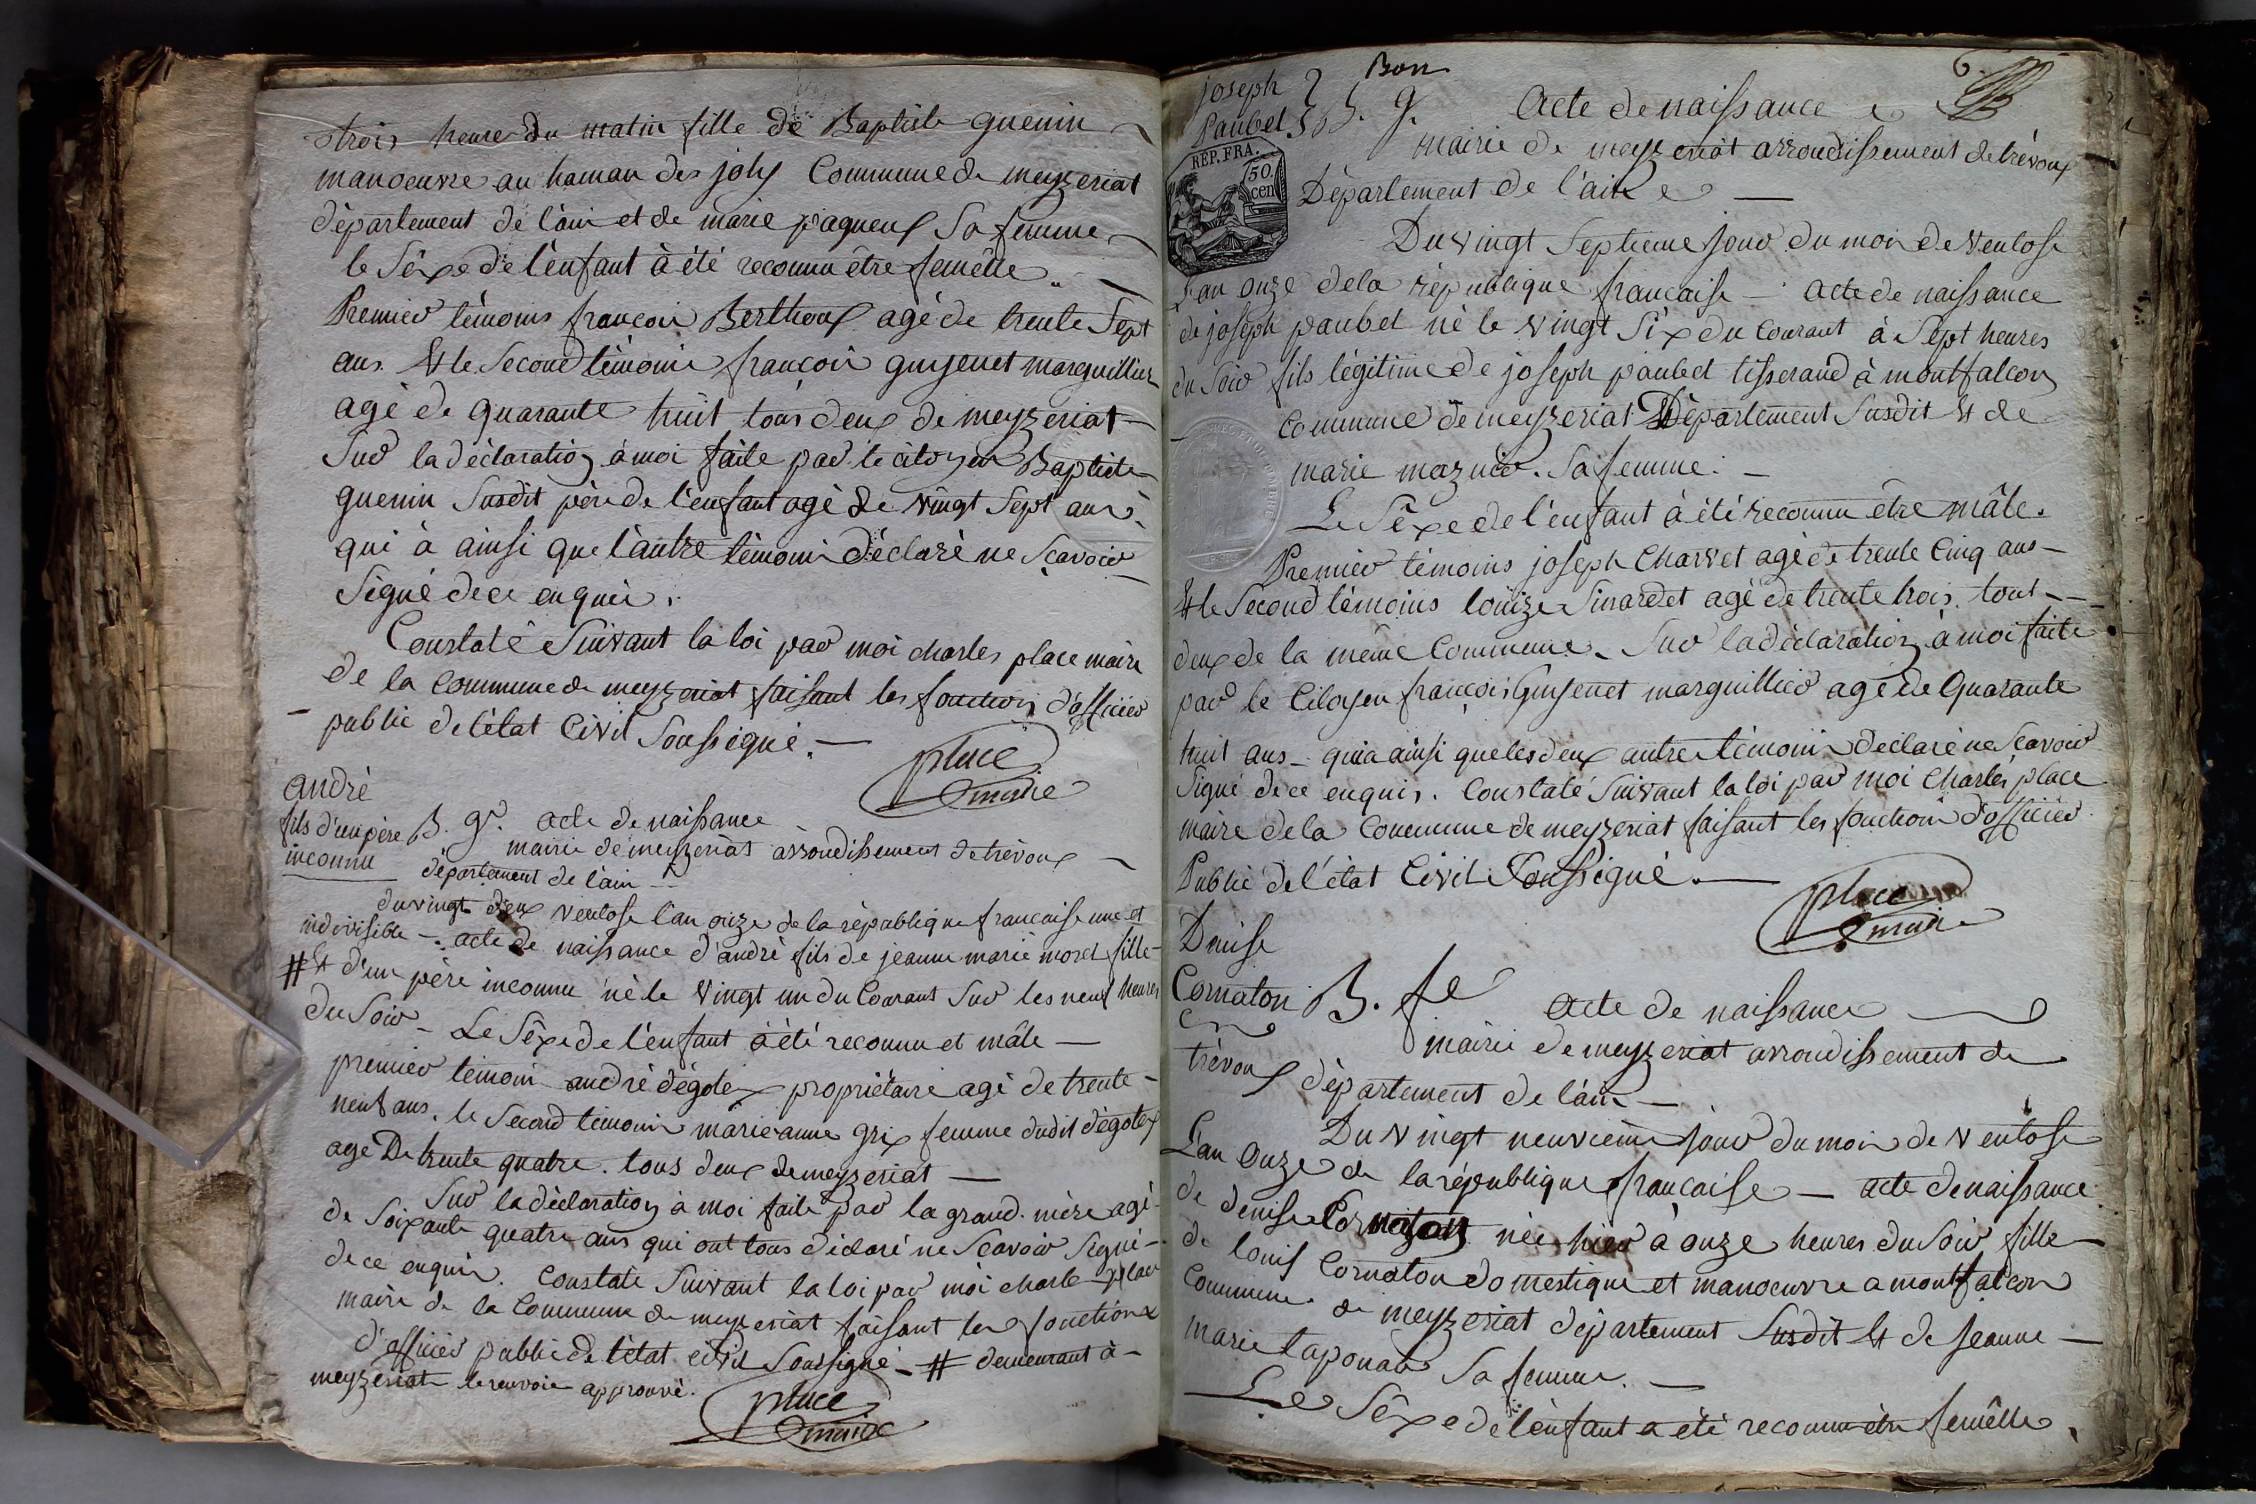 trois heure du matin fille de Baptiste guenin
manoeuvre au haman des joly Commune de meyzeriat
département de l'ain et de marie paqueux sa femme
le sêxe de l'enfant à été reconnu être femêlle.
Premier témoins françois Berthoux agé de trente sept
ans. Et le second témoin françois guyenet marguillier
agé de quarante huit tous deux de meyzeriat
sur la déclaration à moi faite par le citoyen Baptiste
guenin susdit père de l'enfant agé de vingt sept ans.
qui à ainsi que l'autre témoin déclaré ne scavoir
signé de ce enquis.
Constaté suivant la loi par moi charles place maire
de la commune de meyzeriat faisant les fonction d'officier
public de l'état Civil soussigné.
place
maire
andré
fils d'un père
inconnu
B. g. acte de naissance
mairie de meyzeriat arrondissement de trévoux
département de l'ain
du vingt deux ventose l'an onze de la république francaise une et
indivisible - acte de naissance d'andré fils de jeanne marie morel fille
# Et d'un père inconnu né le vingt un du Courant sur les neuf heures
du soir - Le sêxe de l'enfant à été reconnu et mâle
premier témoin andré dégotex propriétaire agé de trente
neuf ans. le second témoin marie anne grix femme dudit dégotex
agé De trente quatre. tous deux de meyzeriat
sur la déclaration à moi faite par la grand. mère agé
de soixante quatre ans qui ont tous déclaré ne scavoir signé
de ce enquis. Constaté suivant la loi par moi charle place
maire de la Commune de meyzeriat faisant les fonctions
d'officier public de l'état civil soussigné - # demeurant à
meyzeriat le renvoie approuvé.
place
maire
Bon
6
joseph
paubel
B. g. Acte de naissance
REP. FRA.
50 cen
mairie de meyzeriat arrondissement de trévoux
Département de l'ain
Du vingt septieme jour du moi de ventose
L'an onze de la république francaise - acte de naissance
de joseph paubel né le vingt six du Courant à sept heures
du soir fils légitime de joseph paubel tisserand à montfalcon
commune de meyzeriat Département susdit Et de
marie mazuir. sa femme.
Le sêxe de l'enfant à été reconnu être mâle.
Premier témoins joseph Charvet agé de trente cinq ans
Et le second témoins louize sinardet agé de trente trois. tout
deux de la même Commune. sur la déclaration à moi faite
par le Citoyen françois guyenet marguillier agé de quarante
huit ans - qui a ainsi que les deux autre témoin déclaré ne scavoir
signé de ce enquis. Constaté suivant la loi par moi Charles place
maire de la Commune de meyzeriat faisant les fonction d'officier
Public de l'état Civil soussigné.
place
maire
Denise
Cornaton B. fe acte de naissance
mairie de meyzeriat arrondissement de
trévoux département de l'ain
Du vingt neuvieme jour du moi de ventose
L'an onze de la république francaise - acte de naissance
de denise Cornaton née hier à onze heures du soir fille
de louis Cornaton domestique et manoeuvre a montfalcon
commune de meyzeriat département susdit Et de jeanne
marie laponat sa femme.
Le sêxe de l'enfant a été reconnu être femêlle.